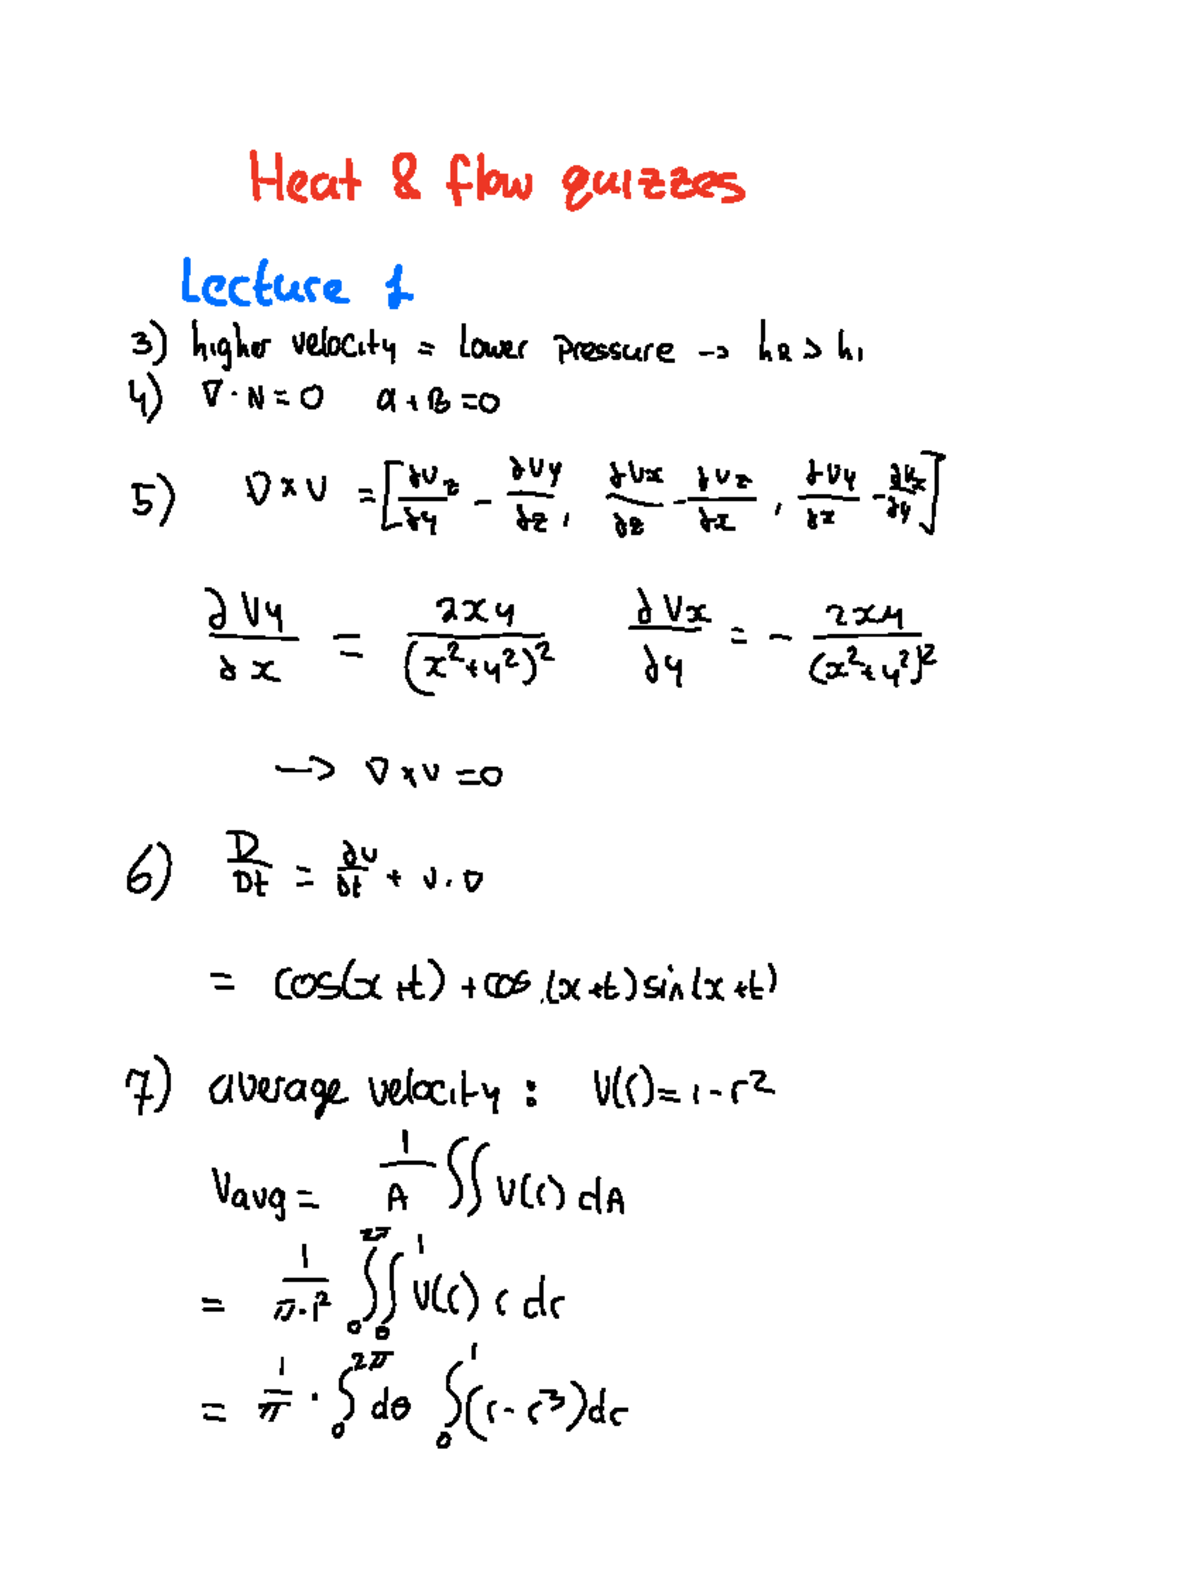 Heat & flow quizzes
Lecture 1
3) higher velocity = lower pressure -> h₂ > h₁
4) ∇·N = 0 a + B = 0
5) ∇ x v = [∂Vz/∂y - ∂Vy/∂z, ∂Vx/∂z - ∂Vz/∂x, ∂Vy/∂x - ∂Vx/∂y]
∂Vy/∂x = 2xy/(x²+y²)² ∂Vx/∂y = - 2xy/(x²+y²)²
-> ∇ x v = 0
6) D/Dt = ∂v/Dt + v·∇
= cos(x+t) + cos(x+t) sin(x+t)
7) average velocity: V(r) = 1 - r²
Vavg = 1/A ∬ V(r) dA
= 1/π·1² ∫₀^2π ∫₀^1 V(r) r dr
= 1/π · ∫₀^2π dθ ∫₀^1 (r - r³) dr